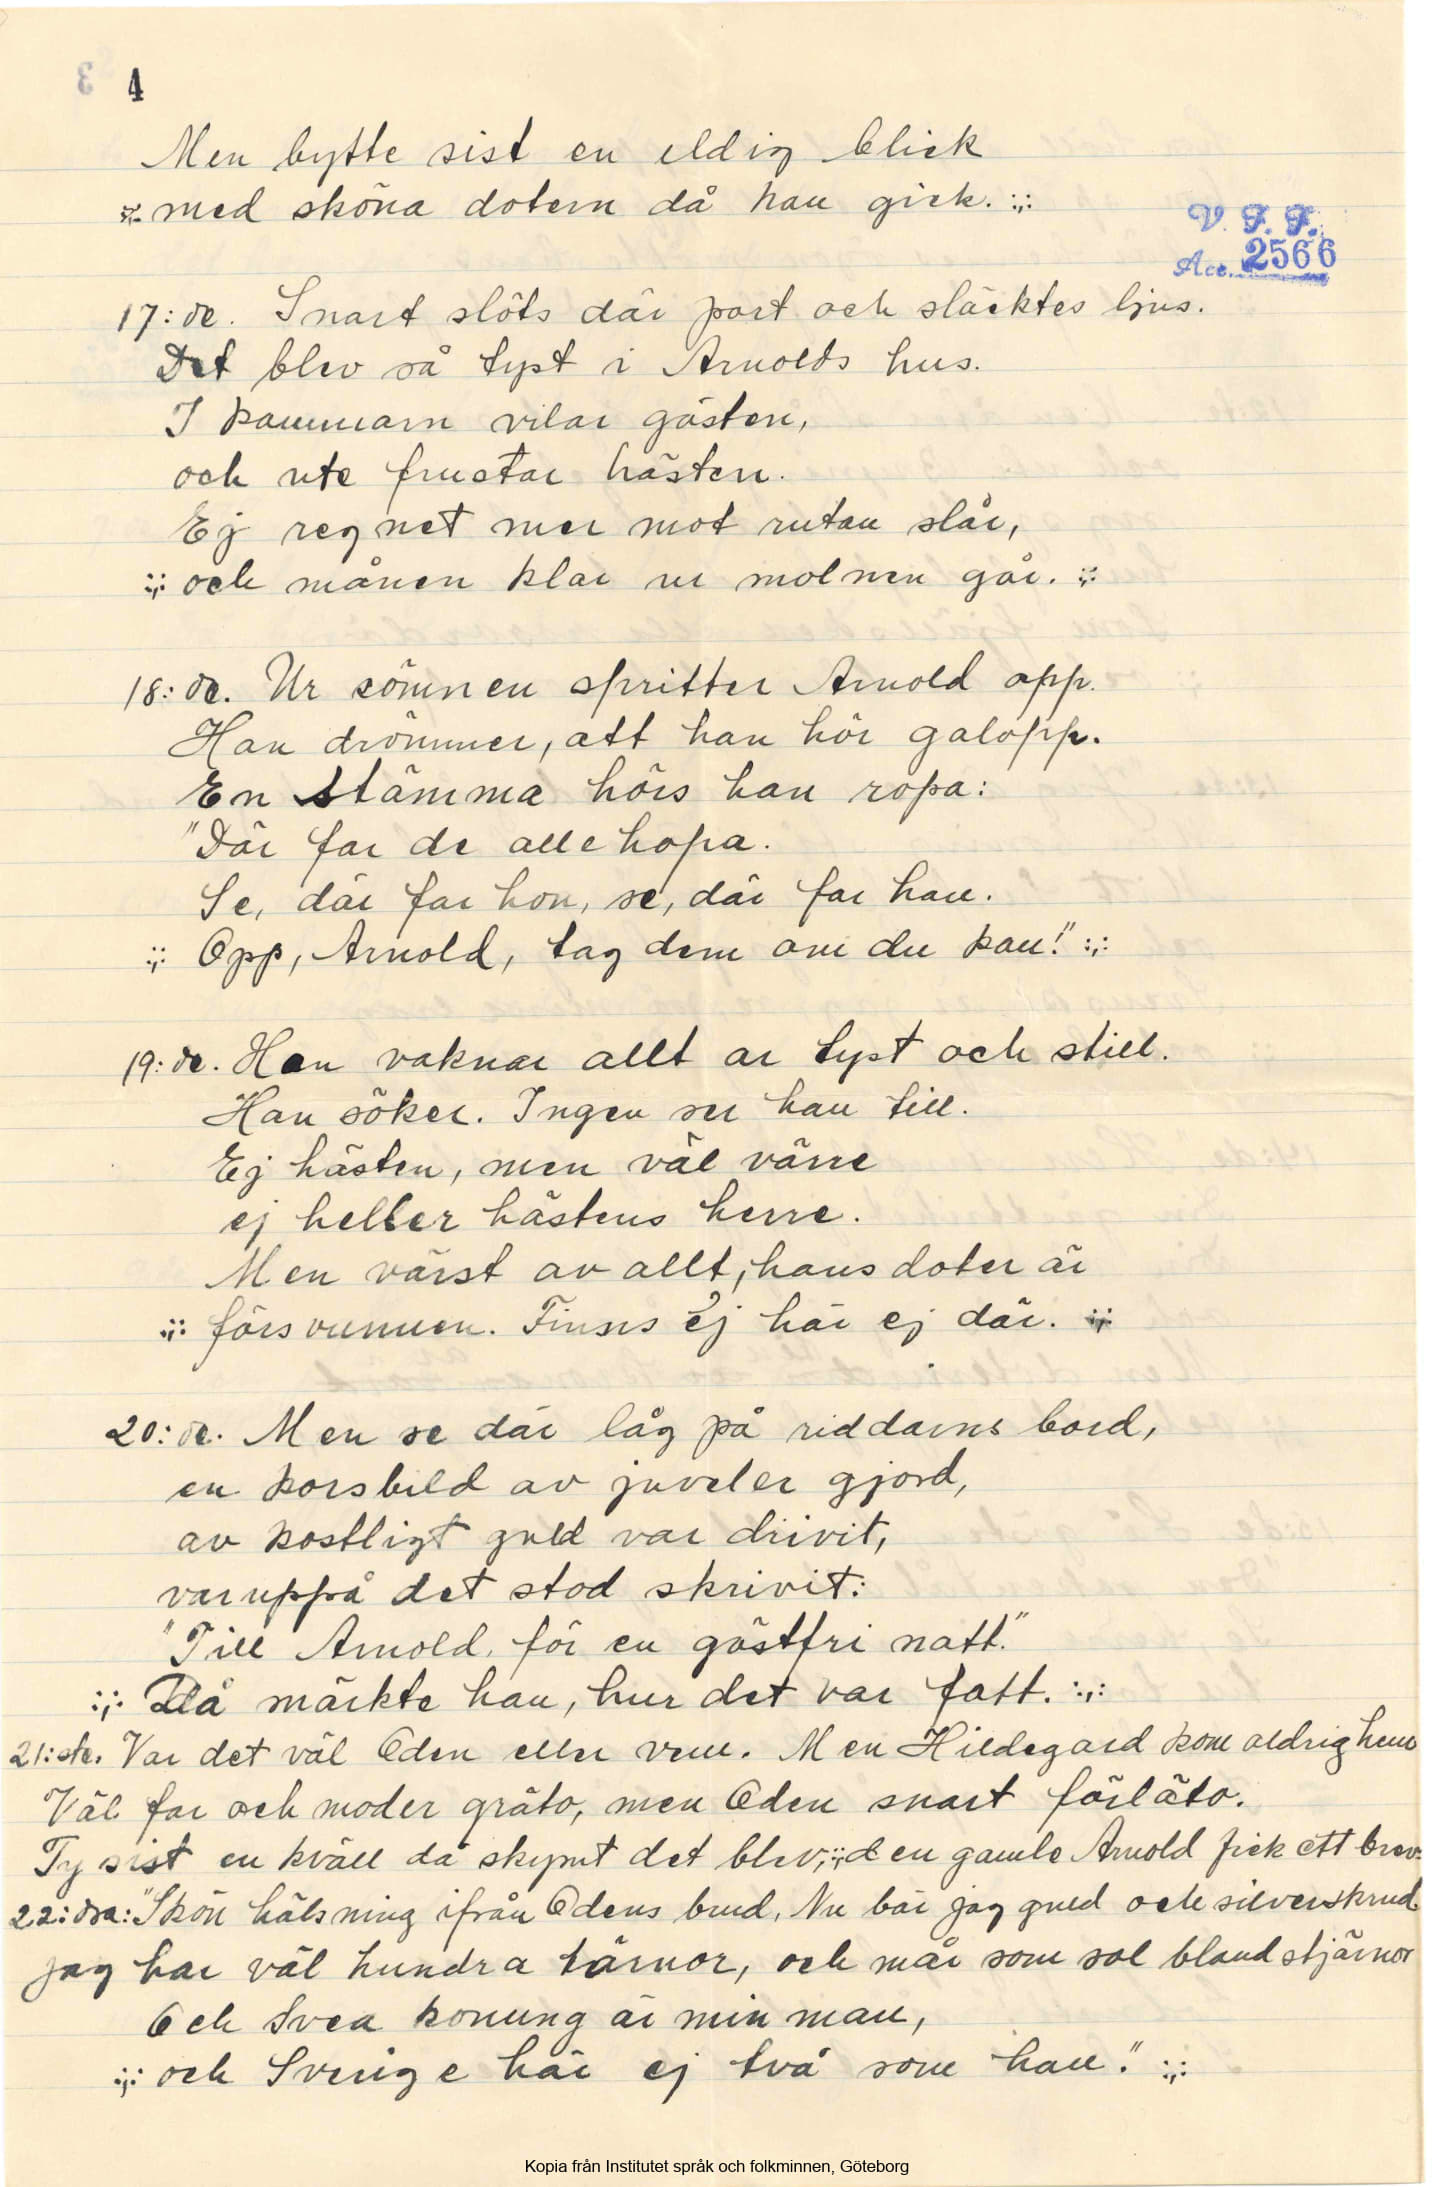 4
Men bytte sist en eldig blick
:,: med sköna dotern då han gick. :,:
V. F. F.
Acc. 2566
17:de. Snart slöts där port och släcktes ljus.
Det blev så tyst i Arnolds hus.
I kammarn vilar gästen,
och ute frustar hästen.
Ej regnet mer mot rutan slår,
:,: och månen klar ur molnen går. :,:
18:de. Ur sömnen spritter Arnold opp.
Han drömmer, att han hör galopp.
En stämma hörs han ropa:
"Där far de allehopa.
Se, där far hon, se, där far han.
:,: Opp, Arnold, tag dem om du kan!" :,:
19:de. Han vaknar allt ar tyst och still.
Han söker. Ingen ser han till.
Ej hästen, men väl värre
ej heller hästens herre.
Men värst av allt, hans doter är
:,: försvunnen. Finns ej här ej där. :,:
20:de. Men se där låg på riddarns bord,
en korsbild av juveler gjord,
av kostligt guld var drivit,
varuppå det stod skrivit:
"Till Arnold, för en gästfri natt."
:,: Då märkte han, hur det var fatt. :,:
21:ste. Var det väl Oden eller vem. Men Hildegard kom aldrig hem
Väl far och moder gräto, men Oden snart förläto.
Ty sist en kväll då skymt det blev, :,: den gamle Arnold fick ett brev:
22:dra: "Skön hälsning ifrån Odens brud, Nu bär jag guld och silverskrud
jag har väl hundra tärnor, och mår som sol bland stjärnor
Och Svea konung är min man,
:,: och Sverige här ej två som han." :,:
Kopia från Institutet språk och folkminnen, Göteborg